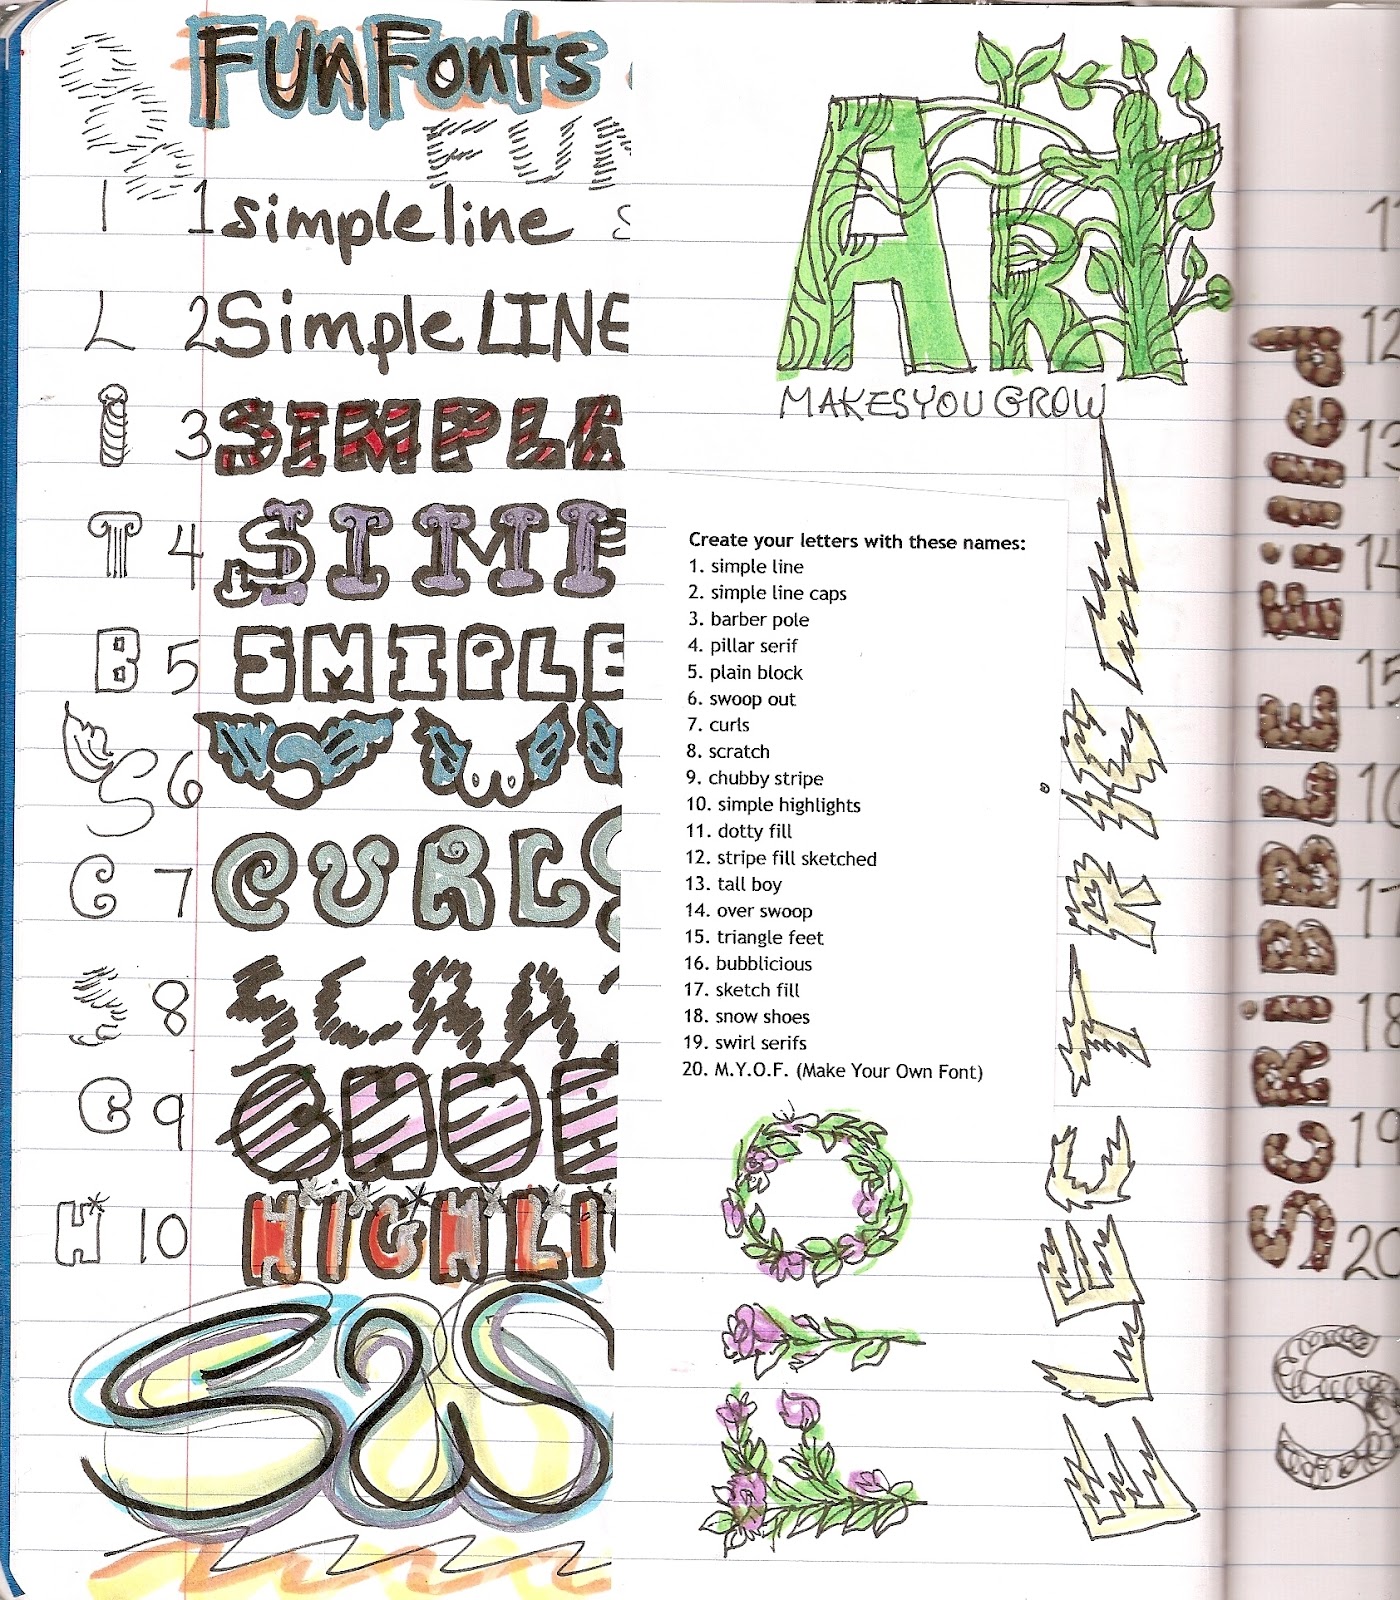 FUnFonts
FUN
1 simple line
L 2 Simple LINE
3 SIMPLE
T 4 SIMP
B 5 SMIPLE
S 6 SW
C 7 CURLS
8 SCRA
G 9
H 10 HIGHLI
ART
MAKES YOU GROW
Create your letters with these names:
1. simple line
2. simple line caps
3. barber pole
4. pillar serif
5. plain block
6. swoop out
7. curls
8. scratch
9. chubby stripe
10. simple highlights
11. dotty fill
12. stripe fill sketched
13. tall boy
14. over swoop
15. triangle feet
16. bubblicious
17. sketch fill
18. snow shoes
19. swirl serifs
20. M.Y.O.F. (Make Your Own Font)
SCRiBBLE Filled
12
13
14
15
18
19
20
S